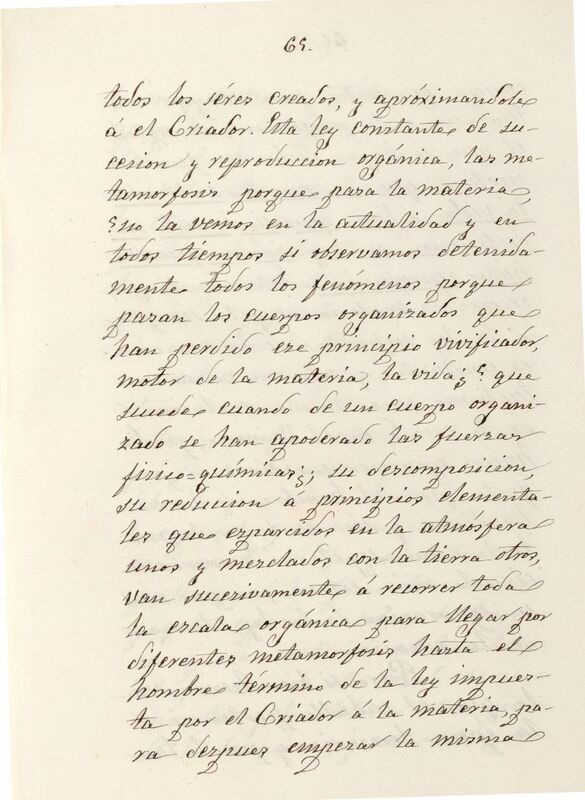 65.
todos los séres creados, y apróximandole
á el Criador. Esta ley constante de su-
cesion y reproduccion orgánica, las me-
tamorfosis porque pasa la materia,
¿no la vemos en la actualidad y en
todos tiempos si observamos detenida-
mente todos los fenómenos porque
pasan los cuerpos organizados que
han perdido ese principio vivificador,
motor de la materia, la vida; ¿que
sucede cuando de un cuerpo organi-
zado se han apoderado las fuerzas
fisico=químicas?; su descomposicion,
su reducion á principios elementa-
les que esparcidos en la atmósfera
unos y mezclados con la tierra otros,
van sucesivamente á recorrer toda
la escala orgánica para llegar por
diferentes metamorfosis hasta el
hombre término de la ley impues-
ta por el Criador á la materia, pa-
ra despues empezar la misma